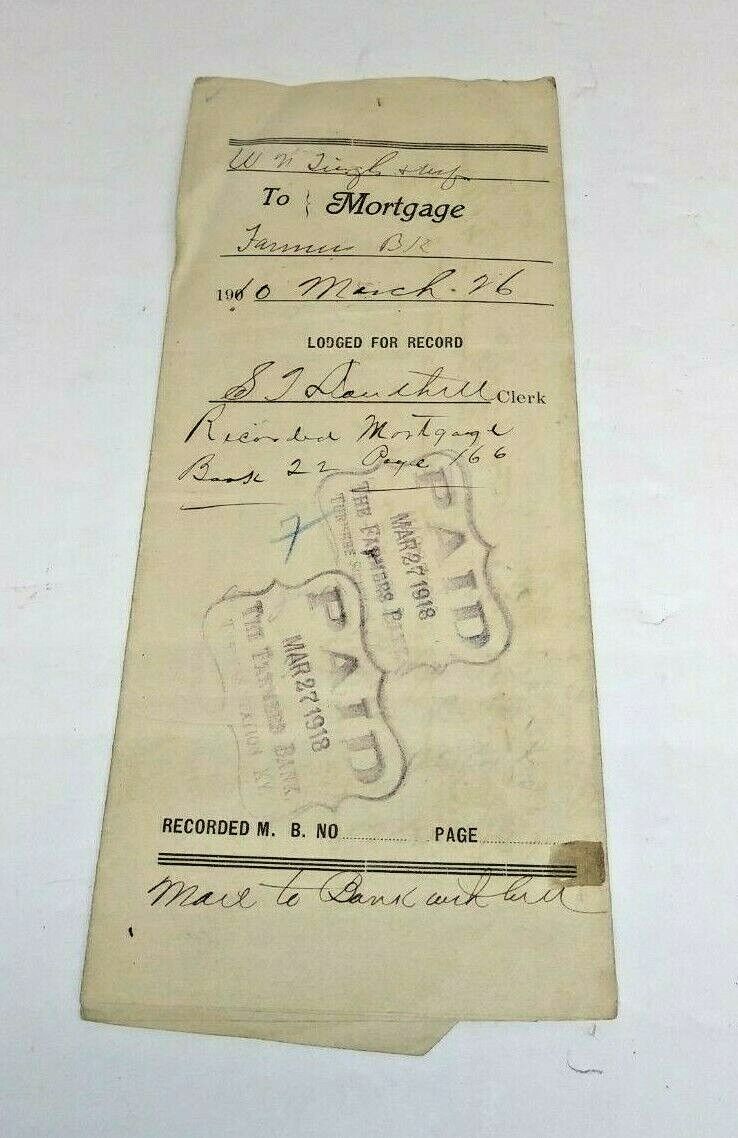 W N & wife
To Mortgage
Farmers Bk
1910 March 26
LODGED FOR RECORD
S T Clerk
Recorded Mortgage
Book 22 Page 166
PAID
MAR 27 1918
THE FARMERS BANK
7
PAID
MAR 27 1918
THE FARMERS BANK
STATION KY
RECORDED M. B. NO PAGE
Mail to Bank with bill